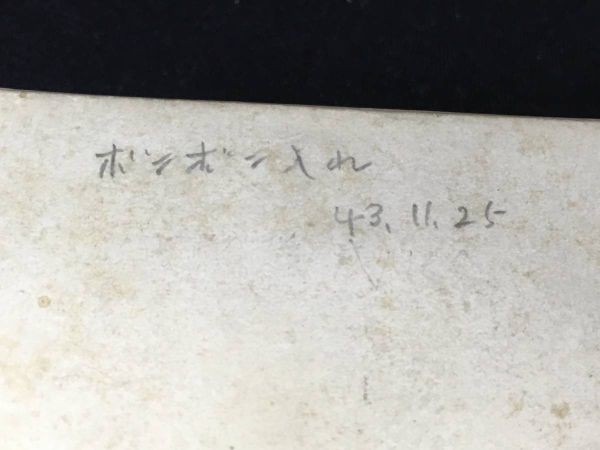 ボンボン入れ
43.11.25